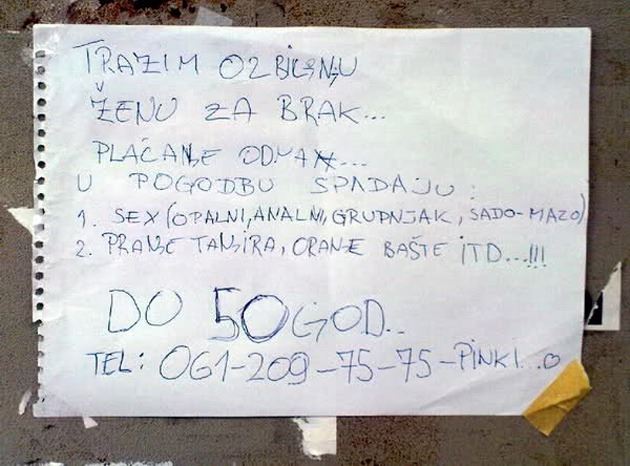 TRAZIM OZBILJNJU
ŽENU ZA BRAK...
PLAĆANJE ODMAH...
U POGODBU SPADAJU:
1. SEX (OPALNI, ANALNI, GRUPNJAK, SADO-MAZO)
2. PRANJE TANJIRA, ORANJE BAŠTE ITD...!!!
DO 50 GOD..
TEL: 061-209-75-75-PINKI..